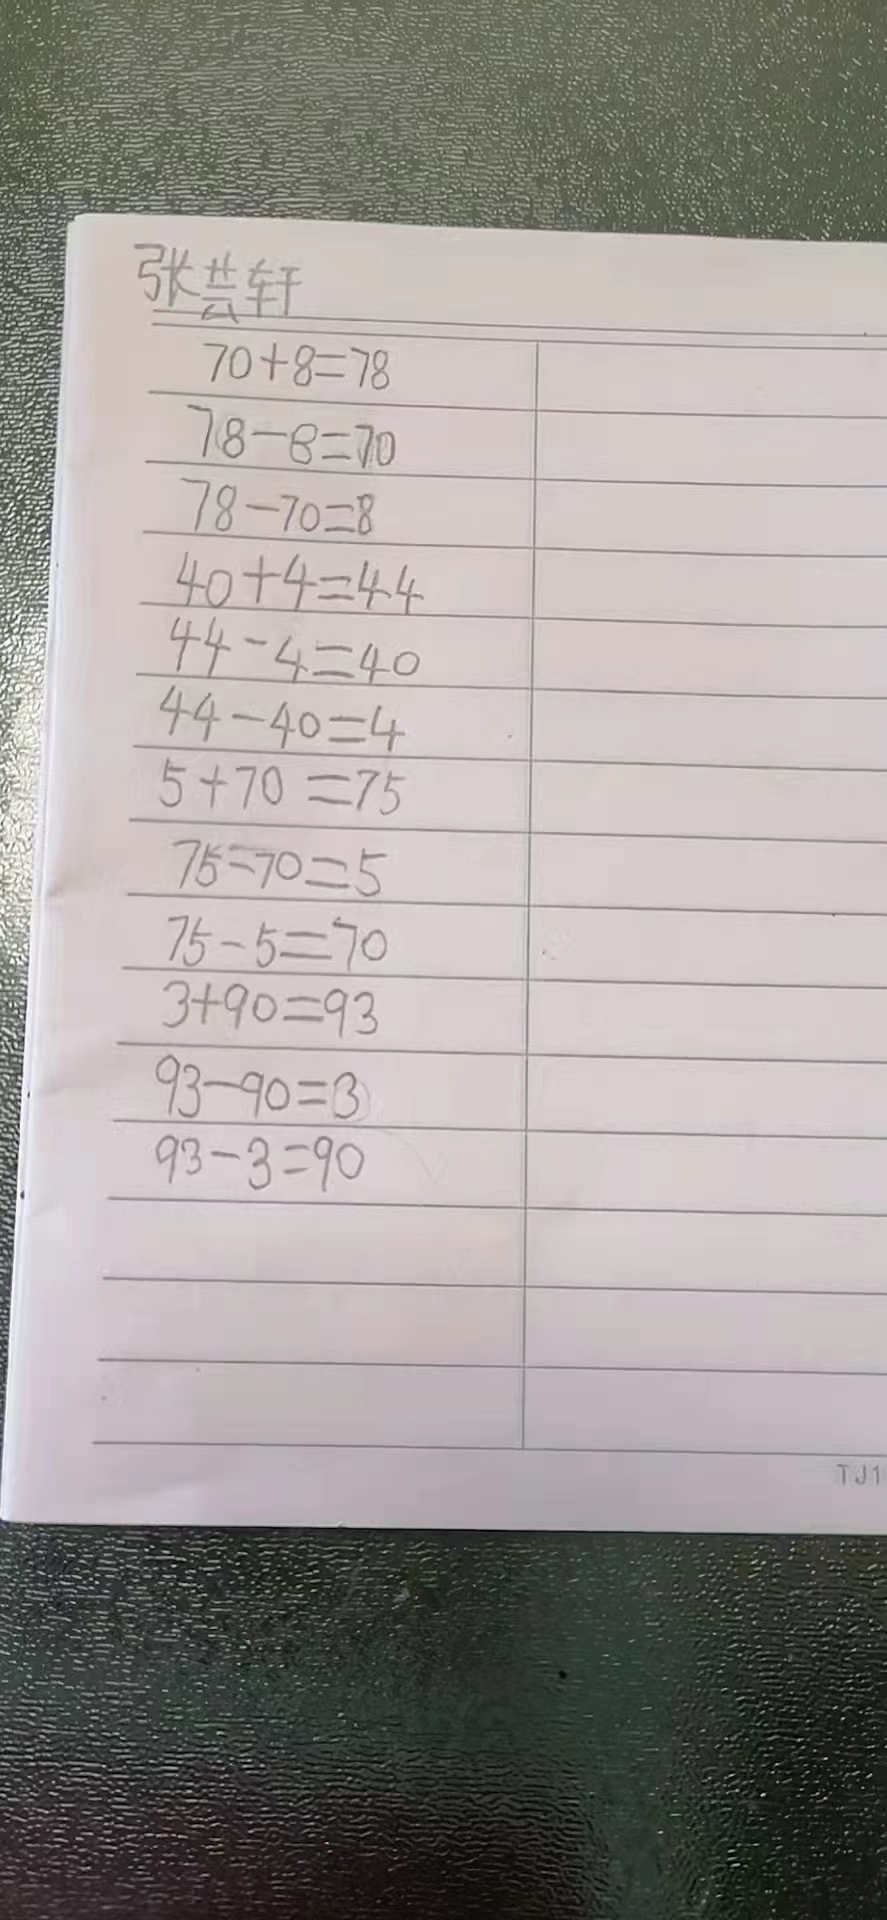 张芸轩
70+8=78
78-8=70
78-70=8
40+4=44
44-4=40
44-40=4
5+70=75
75-70=5
75-5=70
3+90=93
93-90=3
93-3=90
TJ1